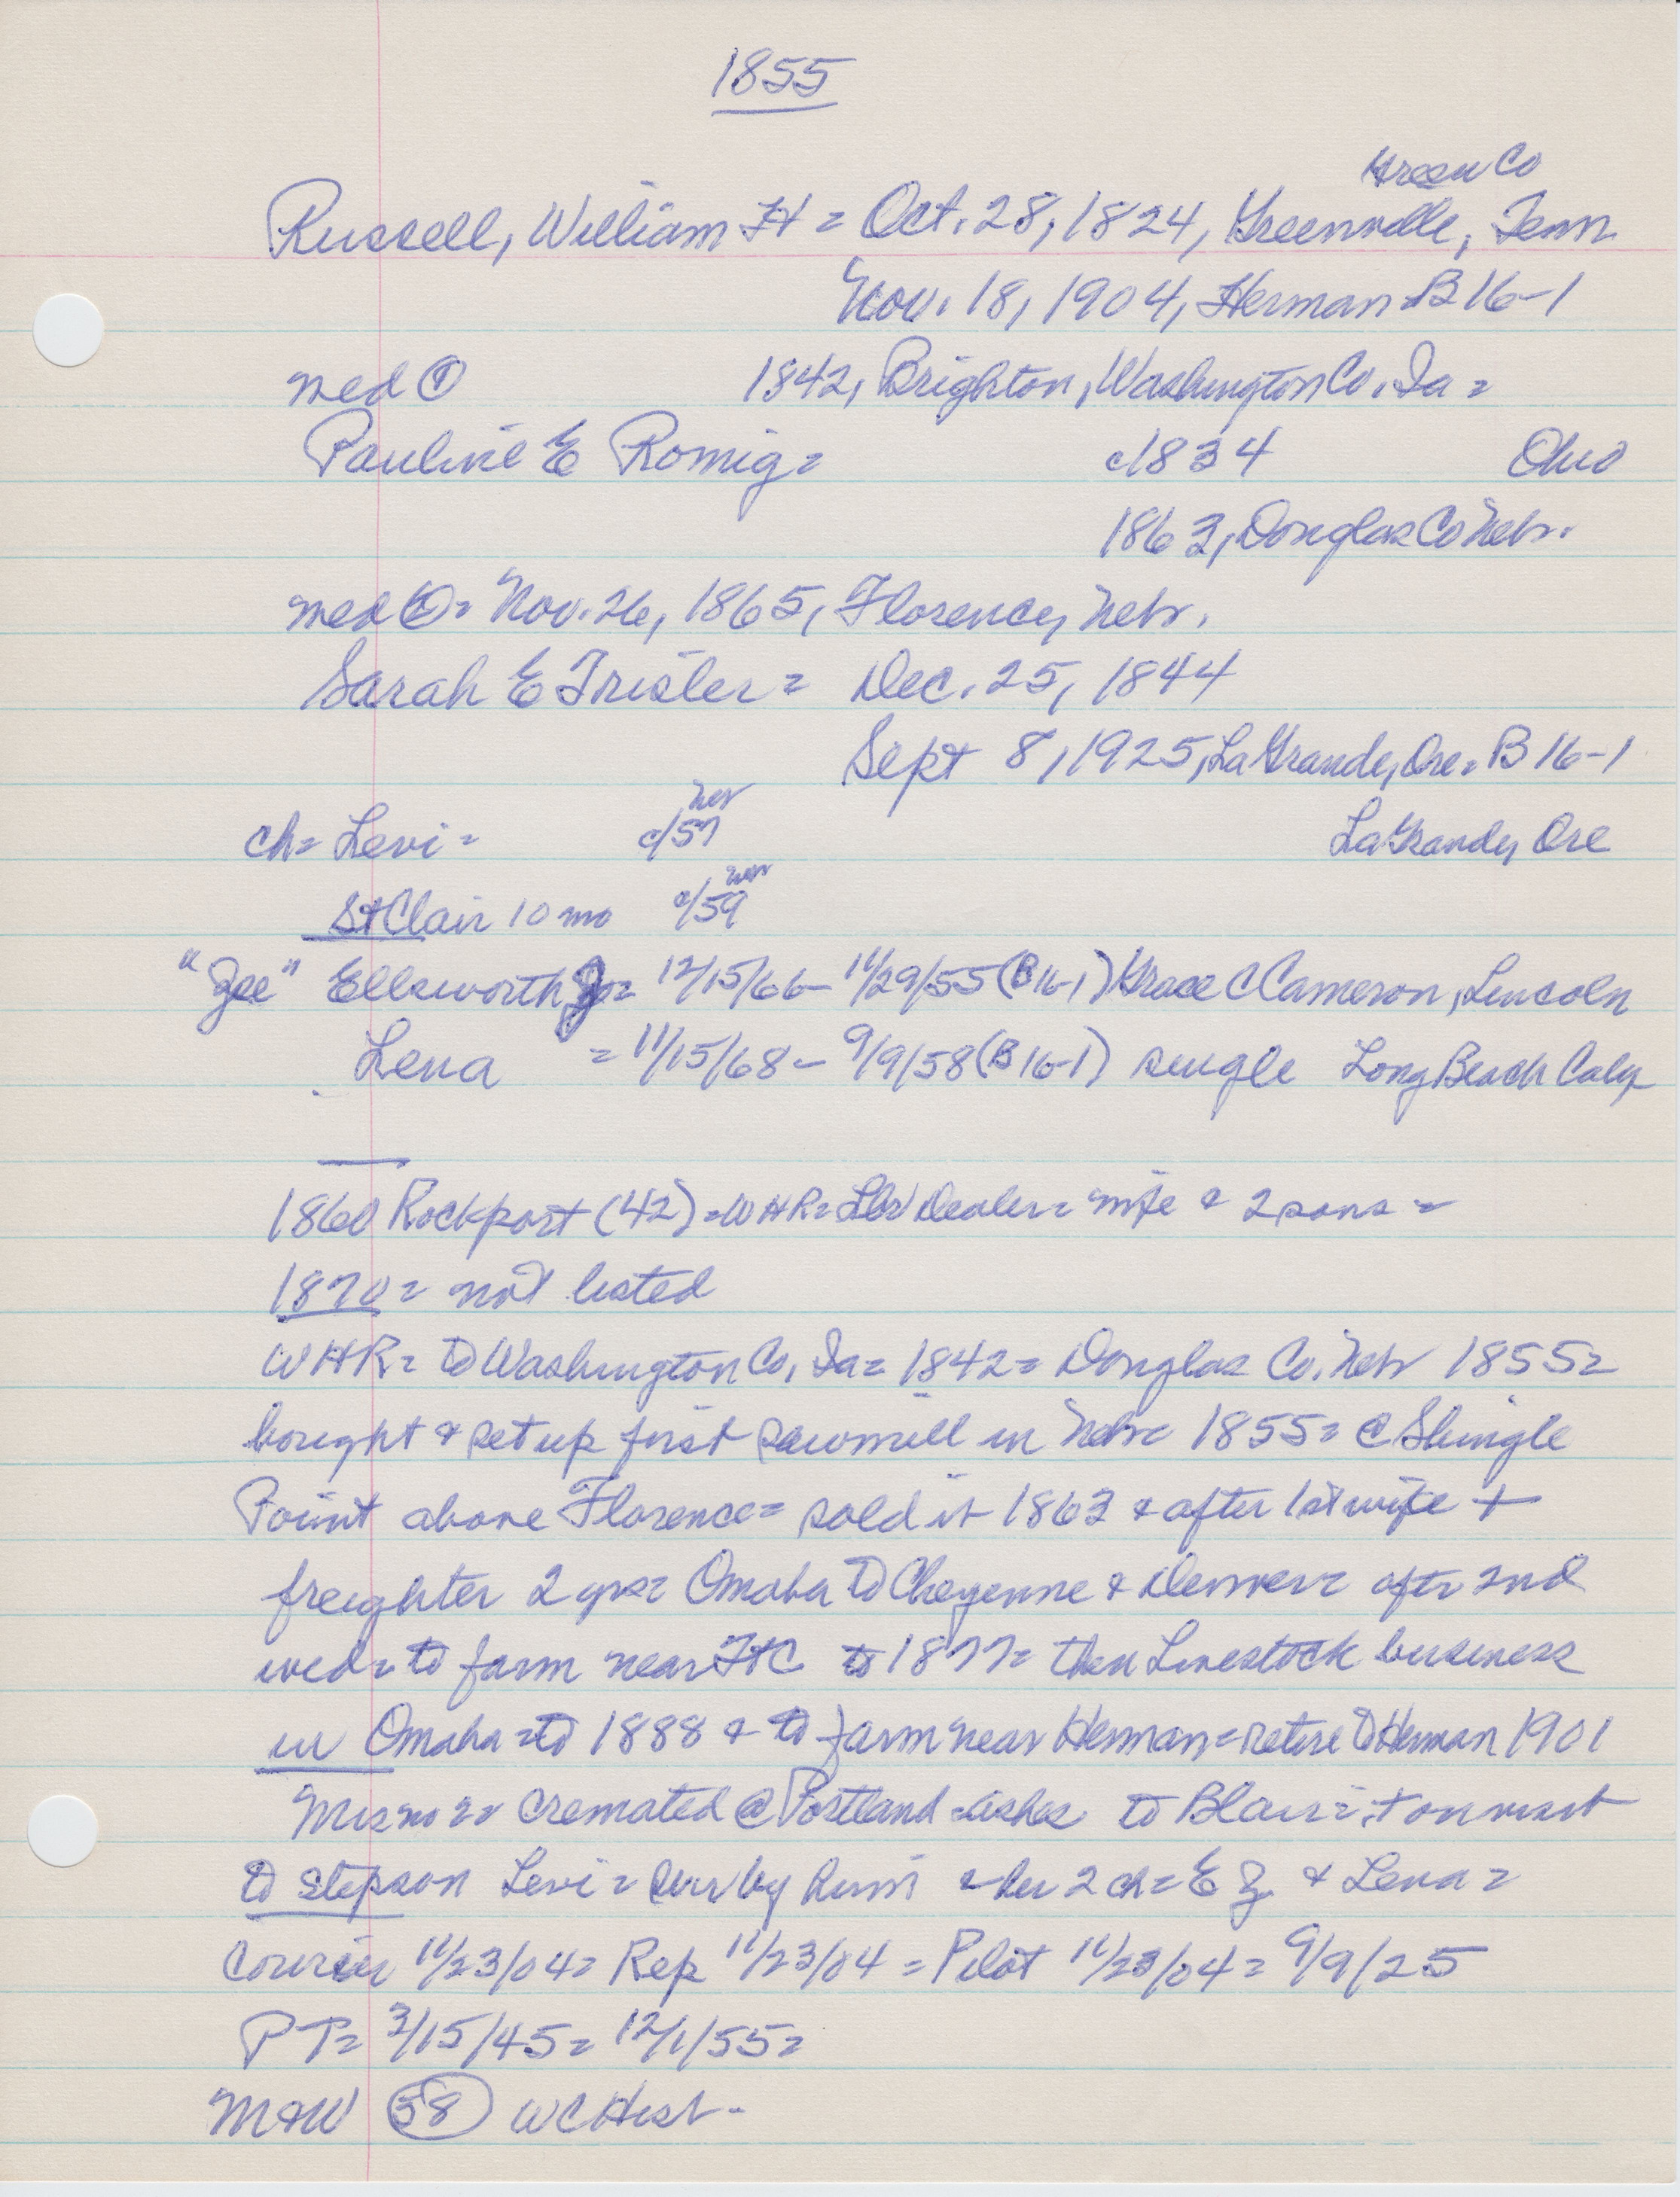 1855
Green Co
Russell, William H = Oct. 28, 1824, Greenville, Tenn
Nov. 18, 1904, Herman B 16-1
wed ① 1842, Brighton, Washington Co. Ia =
Pauline E Romig = c/1834 Ohio
1863, Douglas Co Nebr.
wed ② = Nov. 26, 1865, Florence, Nebr.
Sarah E Trisler = Dec. 25, 1844
Sept 8, 1925, LaGrande, Ore = B 16-1
ch = Levi = c/57 LaGrande, Ore
St Clair 10 mo c/59
"Zee" Ellsworth = 12/15/66 - 11/29/55 (B 16-1) Grace C Cameron, Lincoln
Lena = 11/15/68 - 9/9/58 (B 16-1) single Long Beach Calif
1860 Rockport (42) = WHR = Lbr Dealer = wife & 2 sons =
1870 = not listed
WHR = to Washington Co, Ia = 1842 = Douglas Co. Nebr 1855 =
bought & set up first sawmill in Nebr = 1855 = @ Shingle
Point above Florence = sold it 1863 & after 1st wife +
freighter 2 yrs = Omaha to Cheyenne & Denver = after 2nd
wed = to farm near Ft C to 1877 = then Livestock business
in Omaha = to 1888 & to farm near Herman = retire to Herman 1901
Mrs no 2 = cremated @ Portland - ashes to Blair = + on visit
to stepson Levi = sur by him & her 2 ch = E Z & Lena =
Courier 11/23/04 = Rep 11/23/04 = Pilot 11/23/04 = 9/9/25
P T = 3/15/45 = 12/1/55 =
M&W 58 WC Hist -